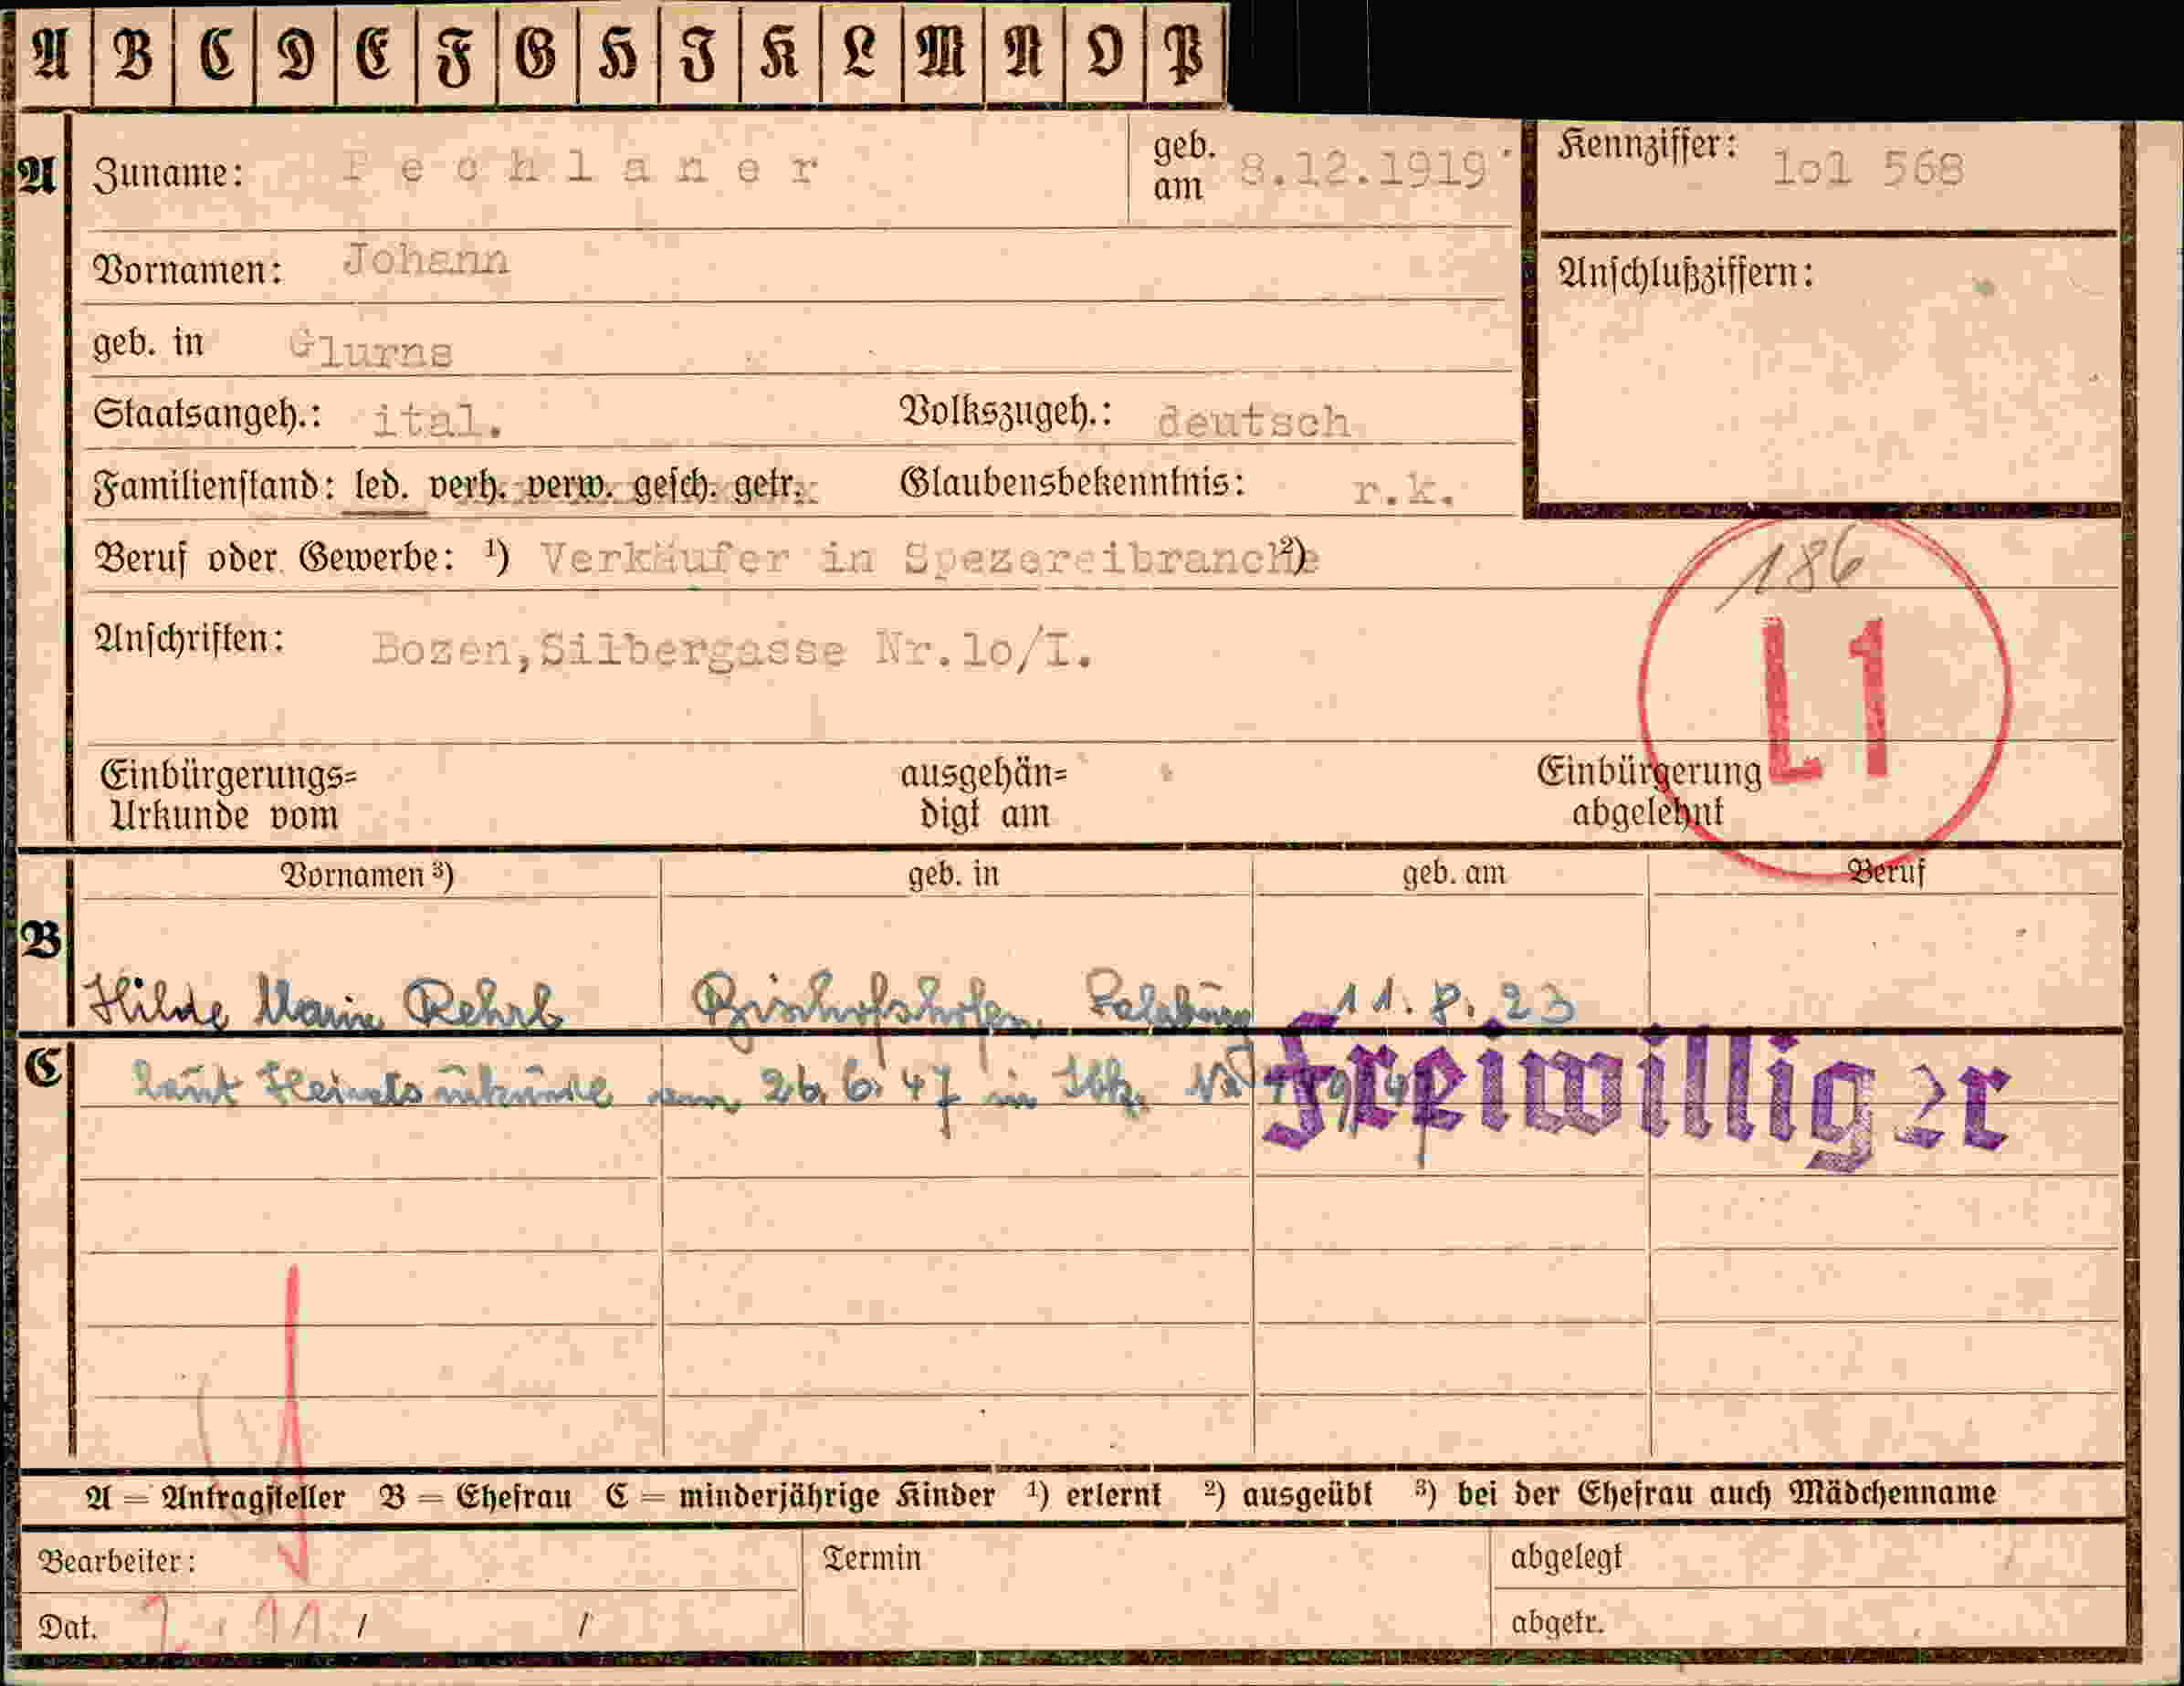 A B C D E F G H I K L M N O P
A Zuname: Pechlaner geb. am 8.12.1919 Kennziffer: lol 568
Vornamen: Johann Anschlußziffern:
geb. in Glurns
Staatsangeh.: ital. Volkszugeh.: deutsch
Familienstand: led. verh. verw. gesch. getr. Glaubensbekenntnis: r.k.
Beruf oder Gewerbe: ¹) Verkäufer in Spezereibranche ²)
186
Anschriften: Bozen,Silbergasse Nr.lo/I.
L1
Einbürgerungs= ausgehän= Einbürgerung
Urkunde vom digt am abgelehnt
Vornamen ³) geb. in geb. am Beruf
B
Hilde Maria Rehrl Bischofshofen Salzburg 11.8.23
C laut Heiratsurkunde vom 26.6.47 in Ibk.
Freiwilliger
A = Antragsteller B = Ehefrau C = minderjährige Kinder ¹) erlernt ²) ausgeübt ³) bei der Ehefrau auch Mädchenname
Bearbeiter: Termin abgelegt
Dat. / / abgetr.